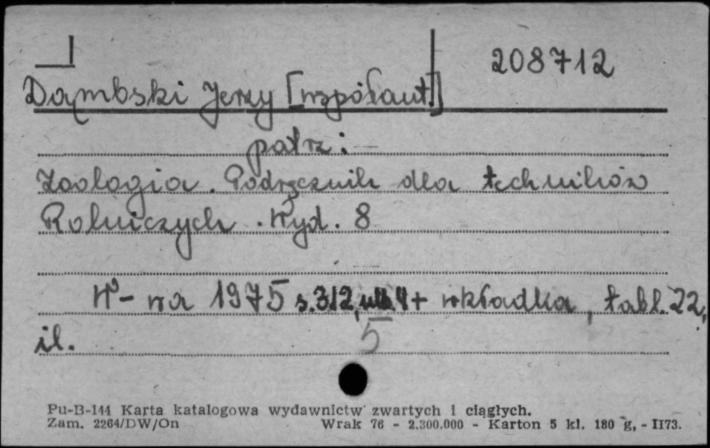 208712
Dąmbski Jerzy [współaut.]
patrz:
Zoologia. Podręcznik dla techników
Rolniczych. Wyd. 8
W-wa 1975 s.312, nlb 4 + wkładka, tabl. 22,
il. 5
Pu-B-144 Karta katalogowa wydawnictw zwartych i ciągłych.
Zam. 2264/DW/On Wrak 76 - 2.300.000 - Karton 5 kl. 180 g, - II73.